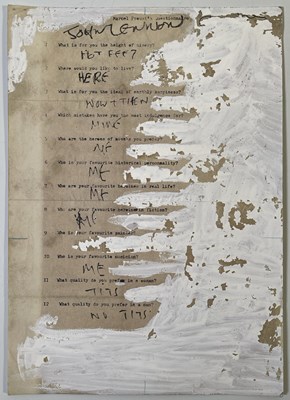 Marcel Proust's questionnaire
JOHN LENNON
1 What is for you the height of misery?
WET FEET
2 Where would you like to live?
HERE
3 What is for you the ideal of earthly happiness?
NOW + THEN
4 Which mistakes have you the most indulgence for?
MINE
5 Who are the heroes of novels you prefer?
ME
6 Who is your favourite historical personality?
ME
7 Who are your favourite heroines in real life?
ME
8 Who are your favourite heroines in fiction?
ME
9 Who is your favourite painter?
ME
10 Who is your favourite musician?
ME
11 What quality do you prefer in a woman?
TITS
12 What quality do you prefer in a man?
NO TITS